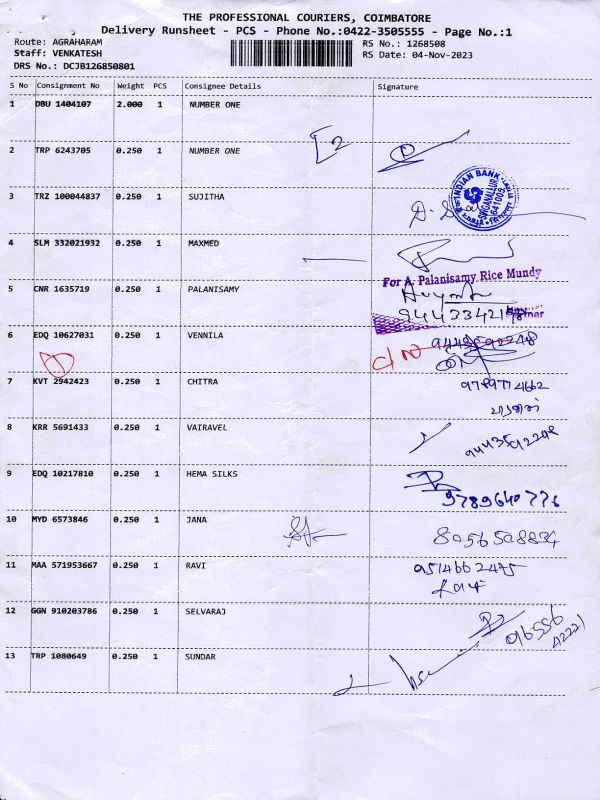 THE PROFESSIONAL COURIERS, COIMBATORE
Delivery Runsheet - PCS - Phone No.:0422-3505555 - Page No.:1
Route: AGRAHARAM
RS No.: 1268508
Staff: VENKATESH
RS Date: 04-Nov-2023
DRS No.: DCJB126850801
S No Consignment No Weight PCS Consignee Details Signature
1 DBU 1404107 2.000 1 NUMBER ONE
2 TRP 6243705 0.250 1 NUMBER ONE
3 TRZ 100044837 0.250 1 SUJITHA
INDIAN BANK
SINGANALLUR
641005
4 SLM 332021932 0.250 1 MAXMED
For A. Palanisamy Rice Mundy
5 CNR 1635719 0.250 1 PALANISAMY
6 EDQ 10627031 0.250 1 VENNILA
7 KVT 2942423 0.250 1 CHITRA
9789774662
8 KRR 5691433 0.250 1 VAIRAVEL
9443592248
9 EDQ 10217810 0.250 1 HEMA SILKS
9789640776
10 MYD 6573846 0.250 1 JANA
8056508834
11 MAA 571953667 0.250 1 RAVI
9514662475
12 GGN 910203786 0.250 1 SELVARAJ
96556
42221
13 TRP 1080649 0.250 1 SUNDAR